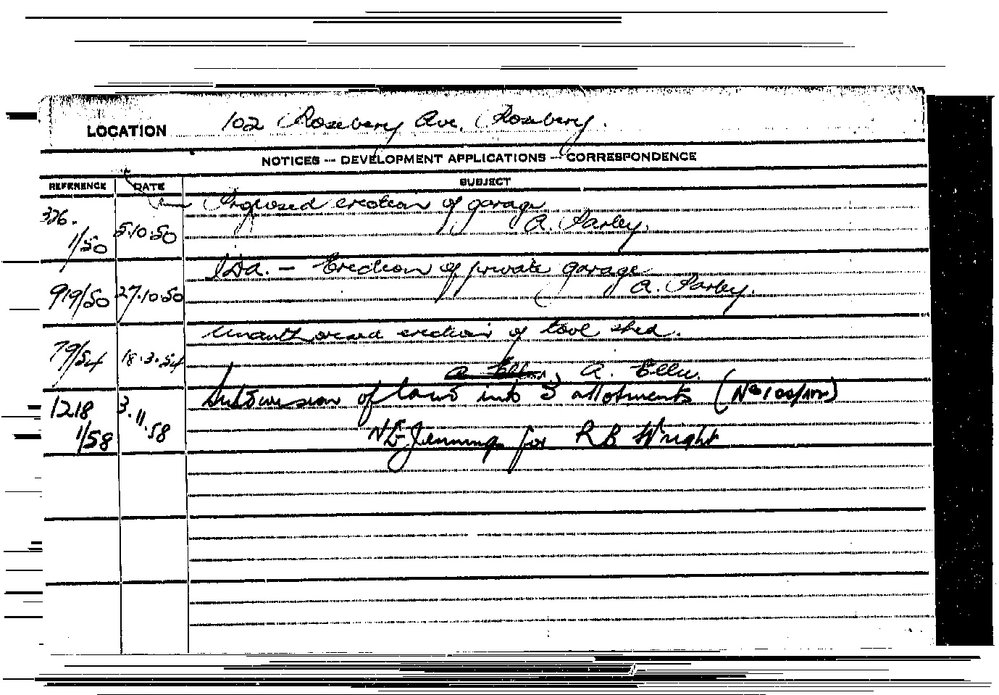 LOCATION 102 Rosebery Ave, Rosebery.
NOTICES — DEVELOPMENT APPLICATIONS — CORRESPONDENCE
REFERENCE DATE SUBJECT
326. 1/50 5.10.50 Proposed erection of garage
A. Parley.
919/50 27.10.50 I.D.a. — Erection of private garage
A. Parley.
79/54 18.3.54 Unauthorised erection of tool shed.
A. Ellis.
1218 1/58 3.11.58 Subdivision of land into 3 allotments (No 100/102)
N E Jennings for R B Wright